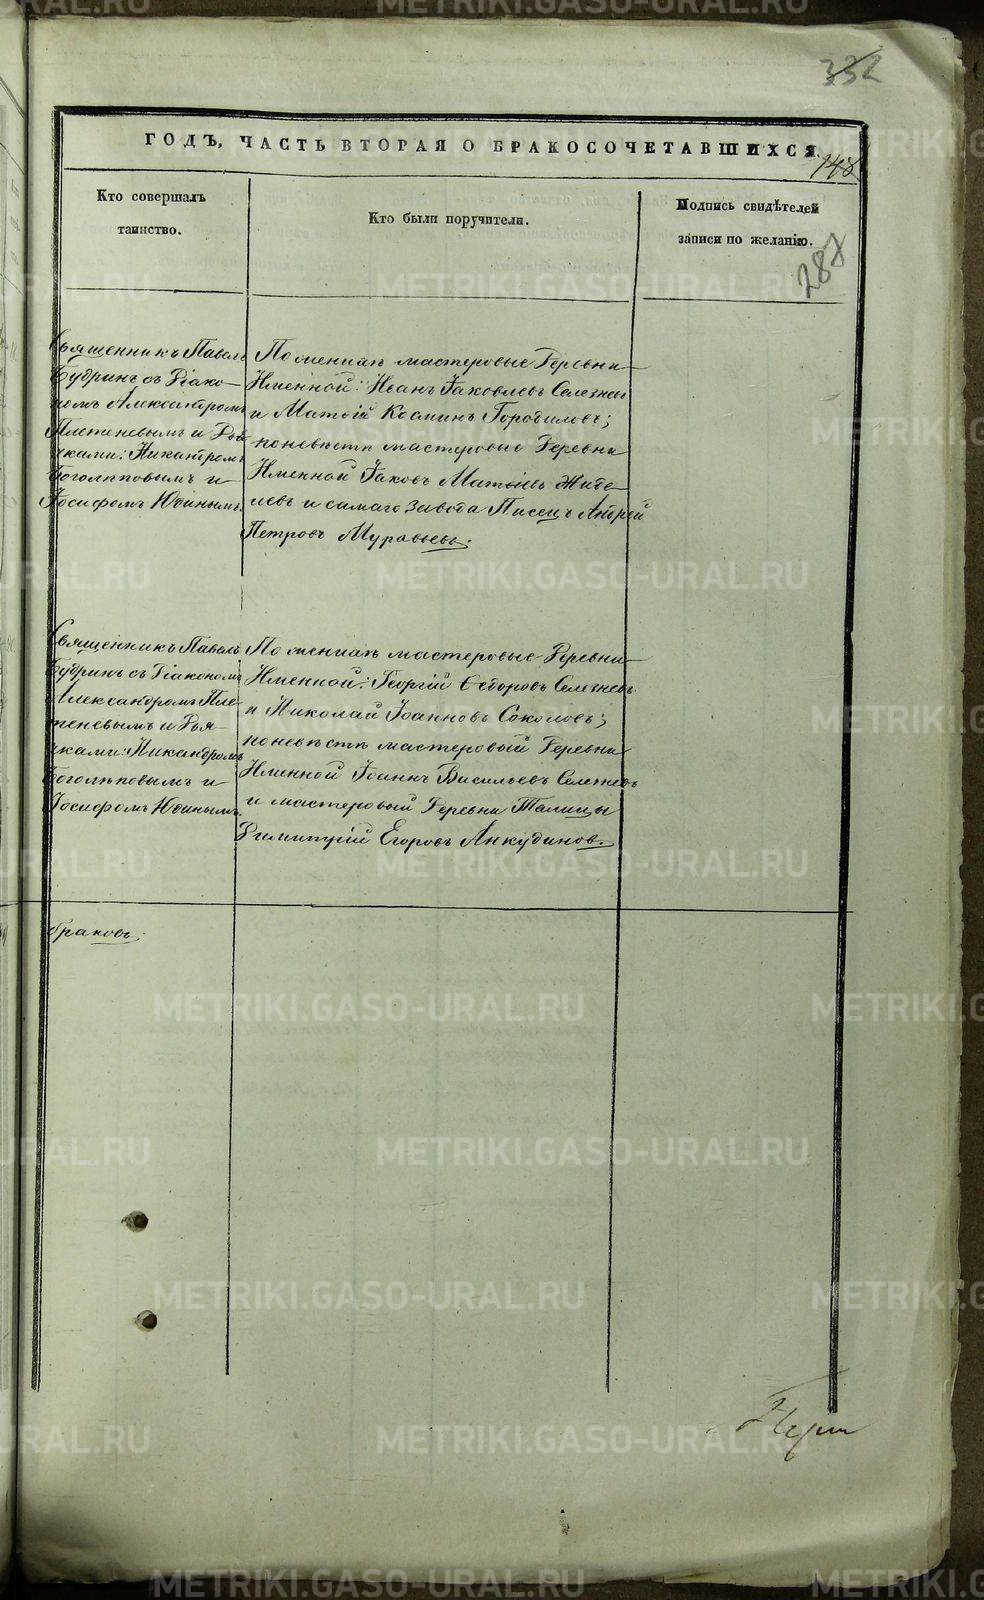 332
ГОДЪ, ЧАСТЬ ВТОРАЯ О БРАКОСОЧЕТАВШИХСЯ.
148
Кто совершалъ
таинство.
Кто были поручители.
Подпись свидѣтелей
записи по желанію.
287
Священникъ Павелъ
Бударинъ съ Діако-
номъ Александромъ
Плетеневымъ и Дья-
чками: Никандромъ
Боголѣповымъ и
Іосифомъ Юдинымъ.
По женихѣ мастеровые деревни
Именной: Иванъ Іаковлевъ Селезневъ
и Матѳій Косминъ Городиловъ;
по невѣстѣ мастеровые деревни
Именной Іаковъ Матѳіевъ Жиде-
левъ и самаго завода Писецъ Андрей
Петровъ Муравьевъ.
Священникъ Павелъ
Бударинъ съ Діакономъ
Александромъ Пле-
теневымъ и Дья-
чками: Никандромъ
Боголѣповымъ и
Іосифомъ Юдинымъ.
По женихѣ мастеровые деревни
Именной: Георгій Ѳедоровъ Селезневъ
и Николай Іоанновъ Соколовъ;
по невѣстѣ мастеровый деревни
Именной Іоаннъ Васильевъ Селезневъ
и мастеровый деревни Талицы
Димитрій Егоровъ Анкудиновъ.
браковъ.
METRIKI.GASO-URAL.RU